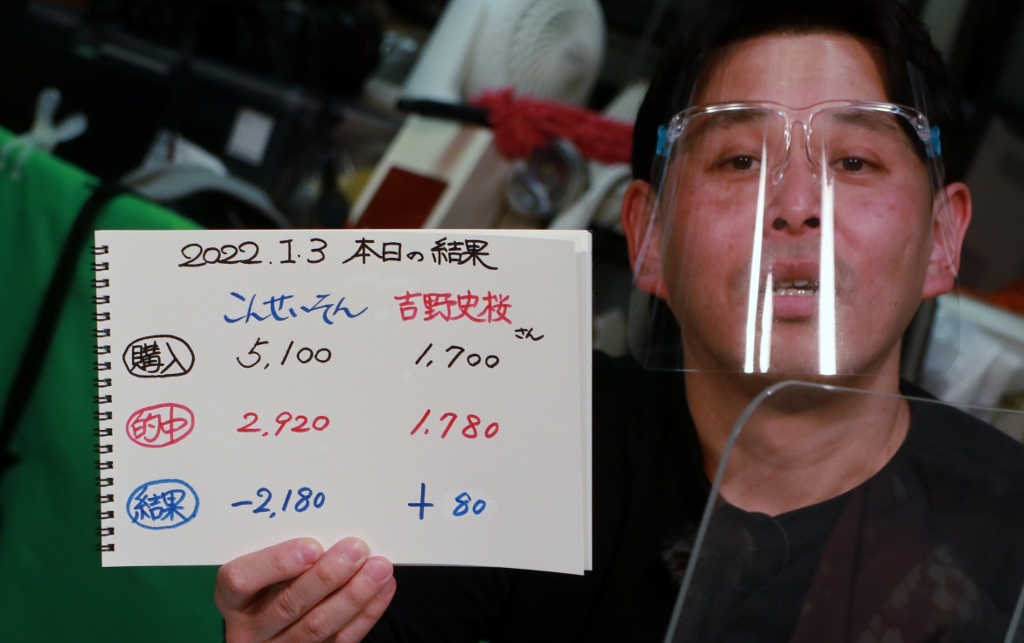 2022.1.3 本日の結果
こんせいそん 吉野史桜さん
購入 5,100 1,700
的中 2,920 1.780
結果 -2,180 + 80